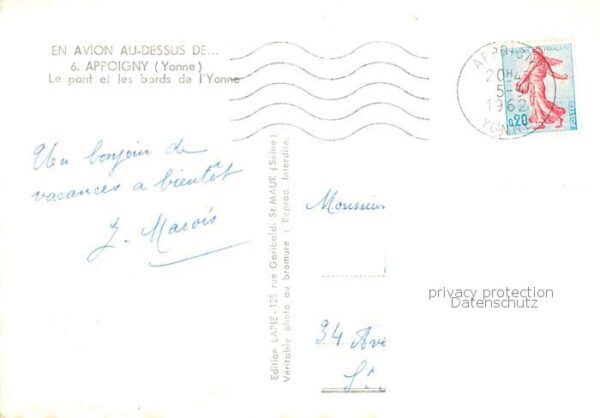 EN AVION AU-DESSUS DE...
6. APPOIGNY (Yonne)
Le pont et les bords de l'Yonne
APPOIGNY
20H4
5-
1962
YONNE
FRANÇAISE
0,20
Un bonjour de
vacances a bientôt
J. Marois
Edition LAPIE - 125 rue Garibaldi, St-MAUR (Seine)
Véritable photo au bromure : Reprod. Interdite.
Monsieur
34 Ave
privacy protection
Datenschutz